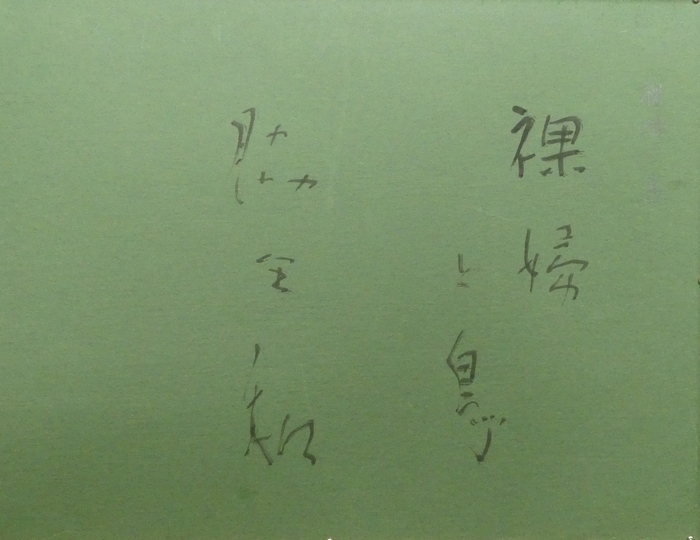 裸婦
と鳥
脇田和